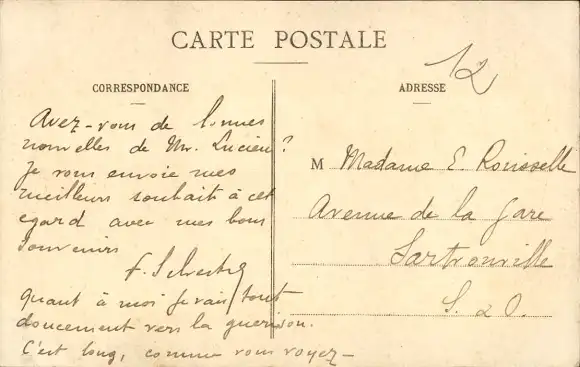 CARTE POSTALE
12
CORRESPONDANCE
Avez-vous de bonnes
nouvelles de Mr. Lucien ?
Je vous envoie mes
meilleurs souhaits à cet
egard avec mes bons
souvenirs
F. Silvestre
quant à moi je vais tout
doucement vers la guerison.
C'est long, comme vous voyez -
ADRESSE
M Madame E Rousselle
Avenue de la Gare
Sartrouville
S. & O.